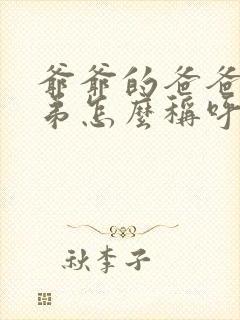 爺爺的爸爸
弟怎麼稱呼
秋李子